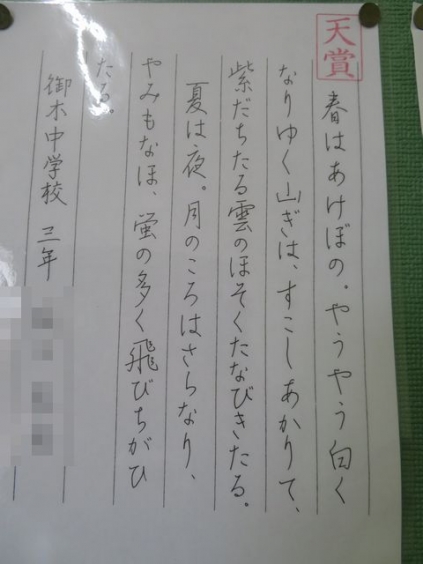 天賞
春はあけぼの。やうやう白く
なりゆく山ぎは、すこしあかりて、
紫だちたる雲のほそくたなびきたる。
夏は夜。月のころはさらなり、
やみもなほ、蛍の多く飛びちがひ
たる。
御木中学校 三年